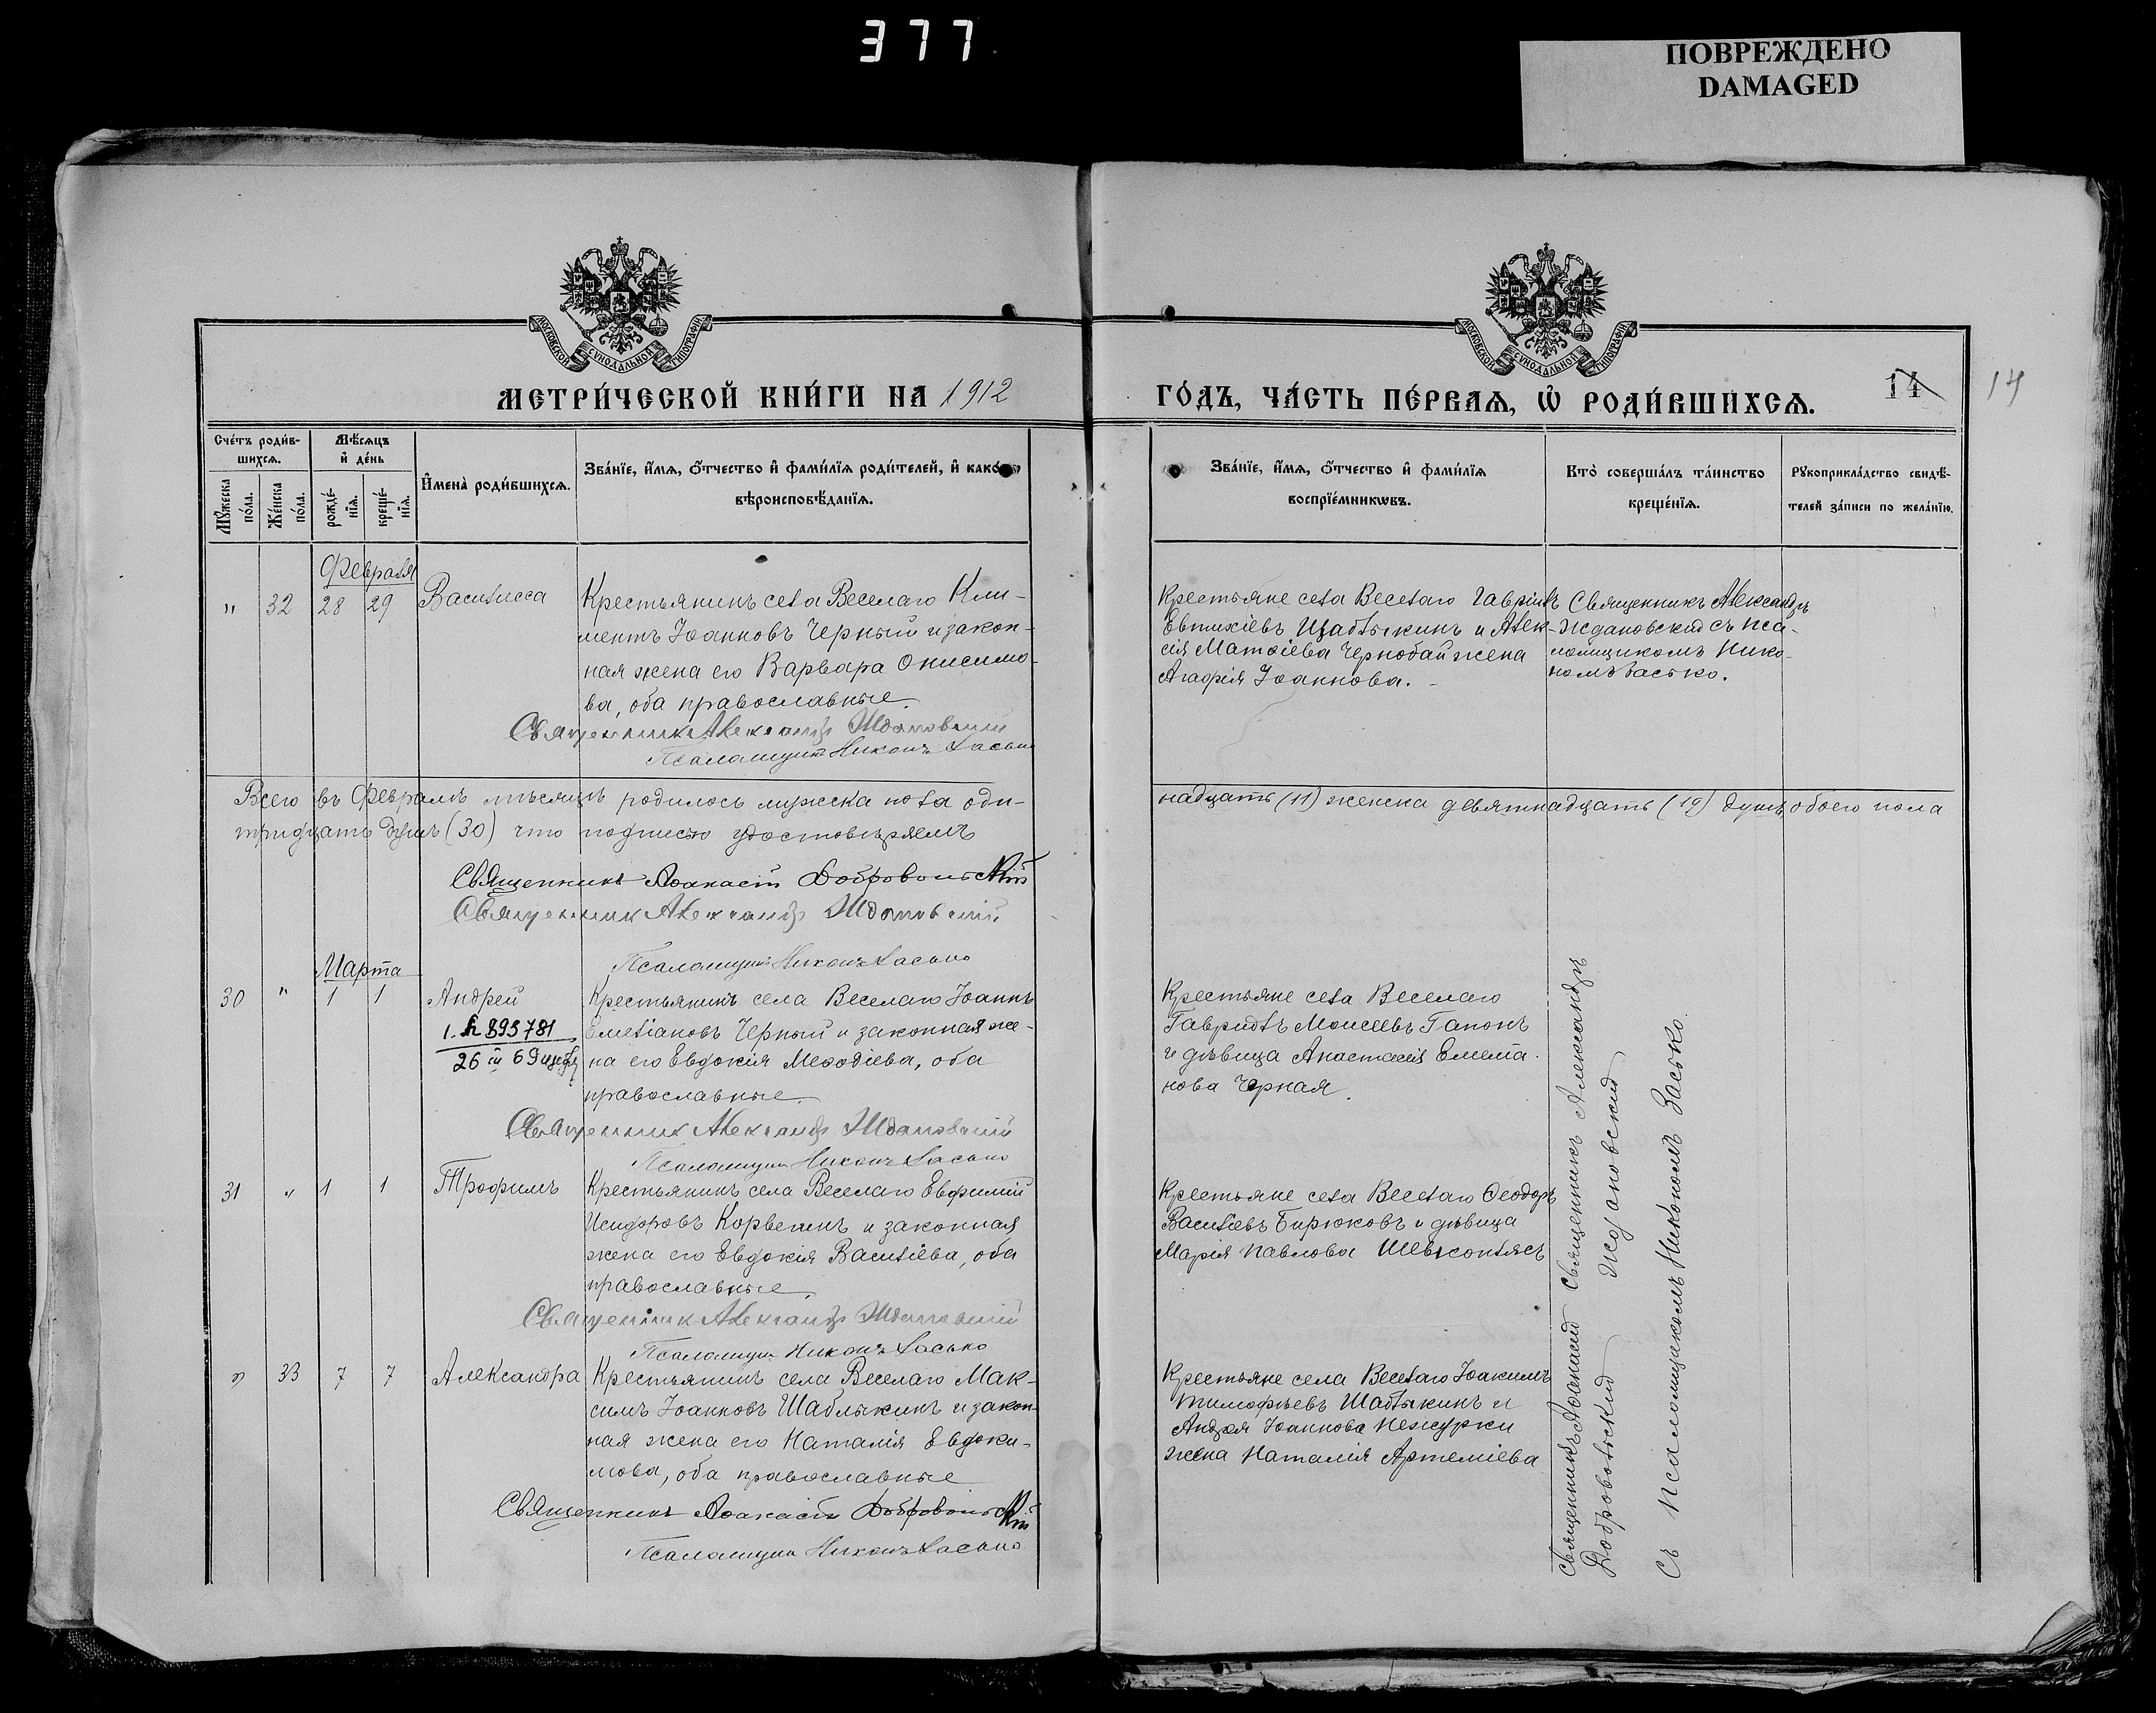 377
ПОВРЕЖДЕНО
DAMAGED
МОСКОВСКОЙ СУНОДАЛЬНОЙ ТИПОГРАФІИ
МОСКОВСКОЙ СУНОДАЛЬНОЙ ТИПОГРАФІИ
МЕТРИ́ЧЕСКОЙ КНИ́ГИ НА 1912
ГО́ДЪ, ЧА́СТЬ ПЕ́РВАѦ, Ѡ҆ РОДИ́ВШИХСѦ.
14 14
Сче́тъ роди́в-
шихсѧ.
Мѣ́сѧцъ
и҆ де́нь
Мꙋ́жеска по́ла.
Же́нска по́ла.
рожде́-
нїѧ.
креще́-
нїѧ.
И҆мена̀ роди́вшихсѧ.
Зва́нїе, и҆́мѧ, ѻ҆́тчество и҆ фами́лїѧ роди́телей, и҆ како́гѡ
вѣроисповѣ́данїѧ.
Зва́нїе, и҆́мѧ, ѻ҆́тчество и҆ фами́лїѧ
воспрїе́мникѡвъ.
Кто̀ соверша́лъ та́инство
креще́нїѧ.
Рꙋкоприкла́дство свидѣ́-
телей за́писи по жела́нїю.
Февраля
" 32 28 29 Василисса
Крестьянинъ села Веселаго Кли-
ментъ Іоанновъ Черный и закон-
ная жена его Варвара Онисимо-
ва, оба православные.
Священникъ Александръ Ждановскій
Псаломщикъ Никонъ Засько
Крестьяне села Веселаго Гавріилъ
Евтихіевъ Шаблыкинъ и Алек-
сія Матѳіева Чернобай жена
Агафія Іоаннова.
Священникъ Александръ
Ждановскій съ пса-
ломщикомъ Нико-
номъ Засько.
Всего въ Февралѣ мѣсяцѣ родилось мужеска пола оди-
надцать (11) женска девятнадцать (19) душъ, обоего пола
тридцать душъ (30) что подписью удостовѣряемъ
Священникъ Аѳанасій Добровольскій
Священникъ Александръ Ждановскій
Псаломщикъ Никонъ Засько
Марта
30 " 1 1 Андрей
1. 893781
26 6
Крестьянинъ села Веселаго Іоаннъ
Емеліановъ Черный и законная же-
на его Евдокія Меѳодіева, оба
православные.
Священникъ Александръ Ждановскій
Псаломщикъ Никонъ Засько
Крестьяне села Веселаго
Гавріилъ Моисеевъ Гапонъ
и дѣвица Анастасія Емеліа-
нова Черная.
31 " 1 1 Трофимъ
Крестьянинъ села Веселаго Евфимій
Исидоровъ Корвегинъ и законная
жена его Евдокія Василіева, оба
православные.
Священникъ Александръ Ждановскій
Псаломщикъ Никонъ Засько
Крестьяне села Веселаго Ѳеодоръ
Василіевъ Бирюковъ и дѣвица
Марія Павлова
" 33 7 7 Александра
Крестьянинъ села Веселаго Мак-
симъ Іоанновъ Шаблыкинъ и закон-
ная жена его Наталія Евдоки-
мова, оба православные
Священникъ Аѳанасій Добровольскій
Псаломщикъ Никонъ Засько
Крестьяне села Веселаго Іоакимъ
Тимофѣевъ Шаблыкинъ и
Андрея Іоаннова
жена Наталія Артеміева
Священникъ Аѳанасій Священникъ Александръ
Добровольскій Ждановскій
Съ псаломщикомъ Никономъ Засько.